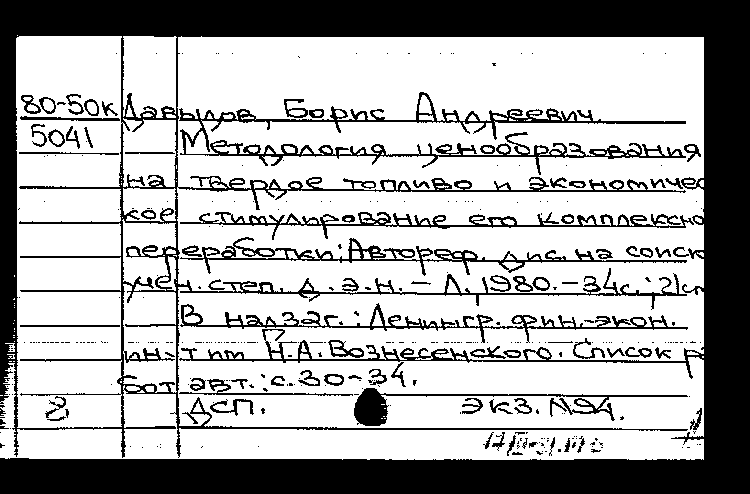 80-50к Давыдов, Борис Андреевич.
5041 Методология ценообразования
на твердое топливо и экономичес
кое стимулирование его комплексно
переработки: Автореф. дис. на соиск
учен. степ. д. э. н. - Л., 1980. - 34с.; 21с
В надзаг.: Ленингр. фин.-экон.
ин-т им Н.А. Вознесенского. Список ра
бот авт.: с. 30-34.
2 ДСП. экз. N94.